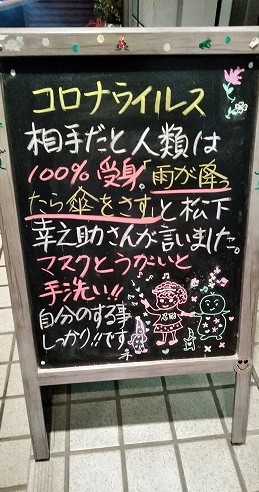 コロナウイルス
相手だと人類は
100%受身。「雨が降っ
たら傘をさす」と松下
幸之助さんが言いました。
マスクとうがいと
手洗い!!
自分のする事
しっかり!!です
ネ